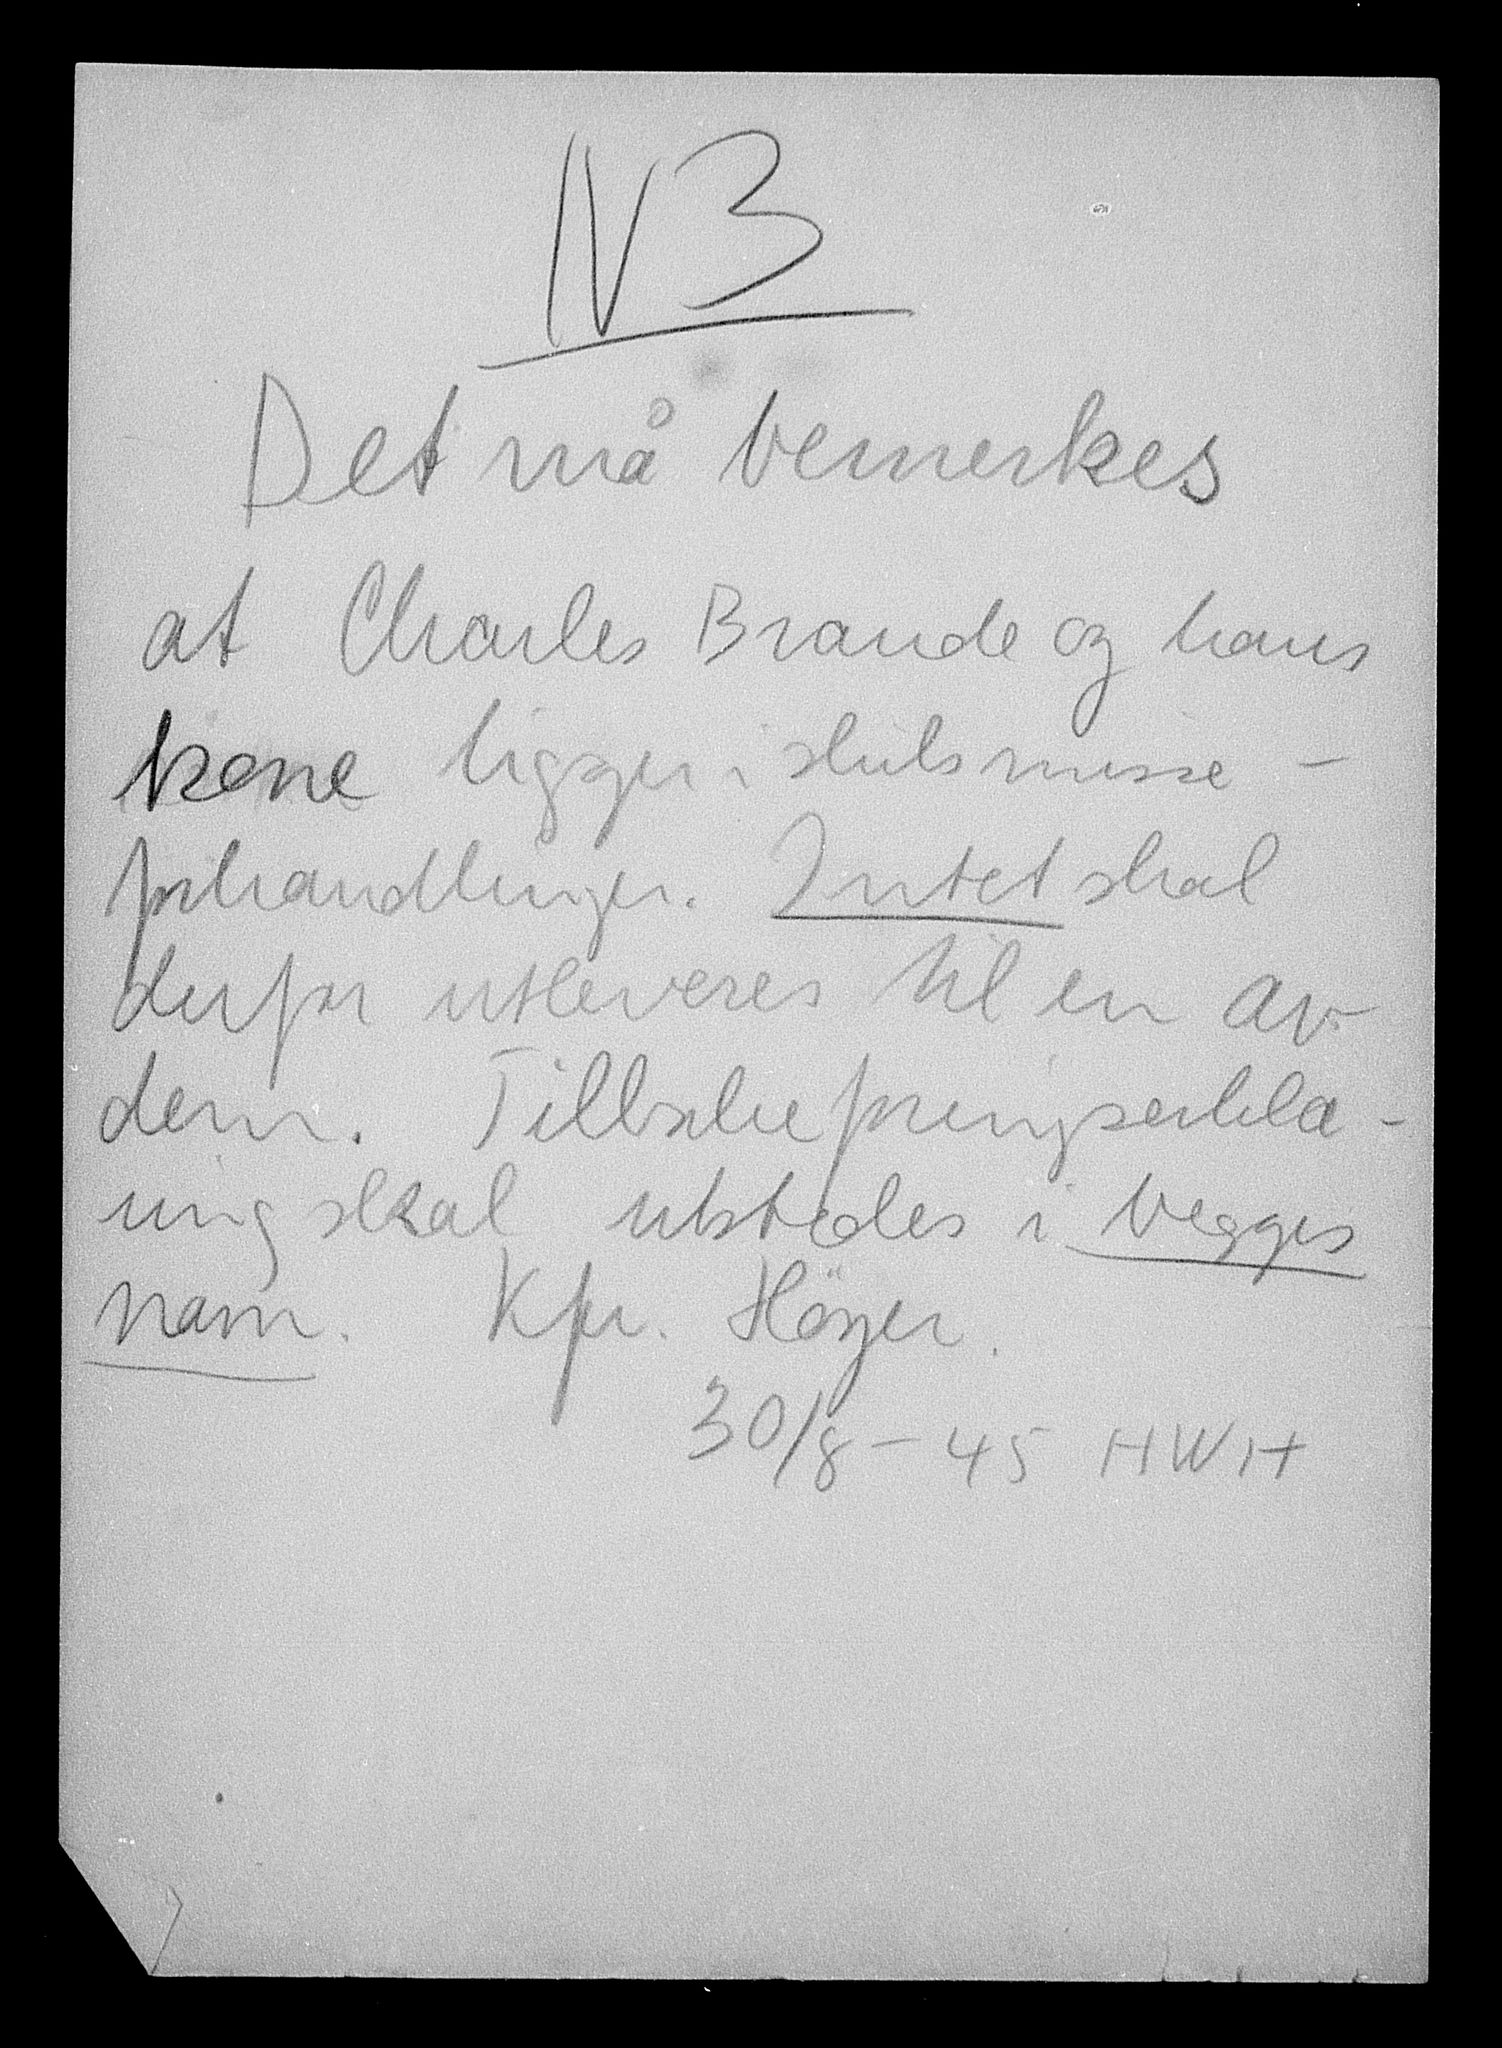 N3
Det må bemerkes
at Charles Brande og hans
kone ligger i skilsmisse-
forhandlinger. Intet skal
derfor utleveres til en av
dem. Tilbakeføringserklæ-
ring skal utstedes i begges
navn. Kfr. Höyer.
30/8-45 HWH